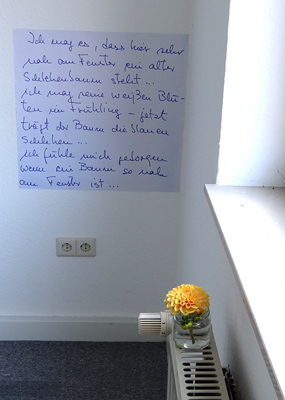 Ich mag es, dass hier sehr
nah am Fenster ein alter
Schlehenbaum steht...
ich mag seine weißen Blü-
ten im Frühling – jetzt
trägt der Baum die blauen
Schlehen...
ich fühle mich geborgen
wenn ein Baum so nah
am Fenster ist...